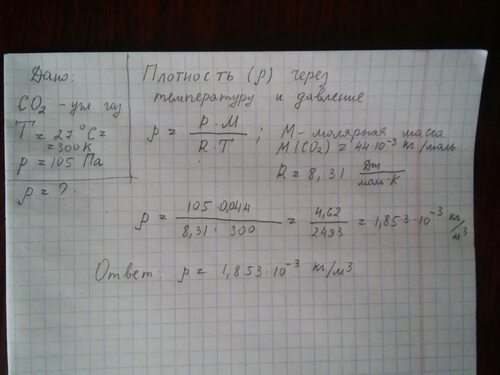 Дано:
CO₂ - угл. газ
T = 27 °C =
= 300 K
p = 105 Па
ρ = ?
Плотность (ρ) через
температуру и давление
ρ = p · M / R · T ; M - молярная масса
M(CO₂) = 44·10⁻³ кг/моль
R = 8,31 Дж/моль·К
ρ = 105 · 0,044 / 8,31 · 300 = 4,62 / 2493 = 1,853·10⁻³ кг/м³
Ответ: ρ = 1,853·10⁻³ кг/м³